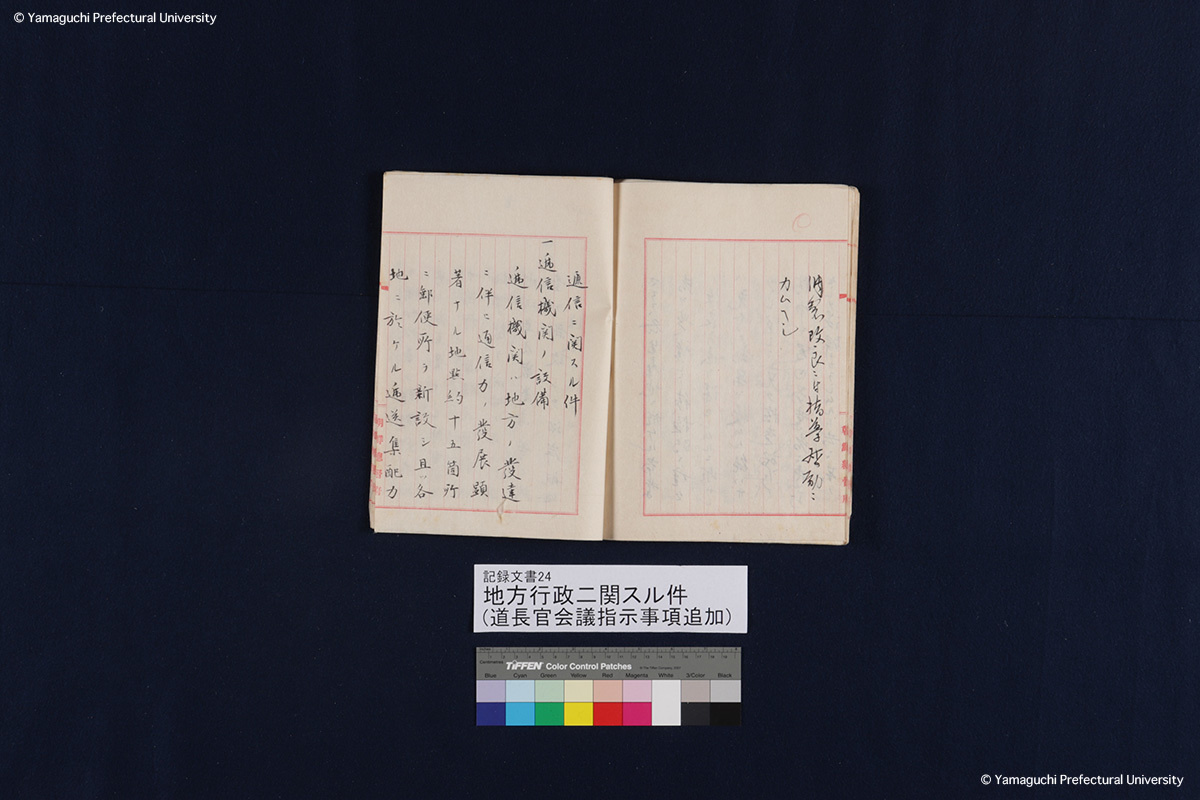 © Yamaguchi Prefectural University
改良ニ
力ムヘシ
逓信ニ関スル件
一逓信機関ノ設備
逓信機関ハ地方ノ發達
ニ伴ヒ通信力ノ發展顕
著ナル地点約十五箇所
ニ郵便所ヲ新設シ且ツ各
地ニ於ケル逓送集配力
記録文書24
地方行政ニ関スル件
(道長官会議指示事項追加)
Inches
Centimetres
TIFFEN Color Control Patches
© The Tiffen Company, 2007
Blue Cyan Green Yellow Red Magenta White 3/Color Black
© Yamaguchi Prefectural University